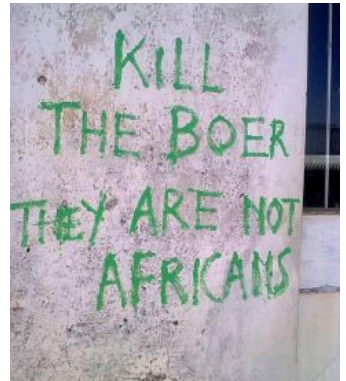 KILL
THE BOER
THEY ARE NOT
AFRICANS